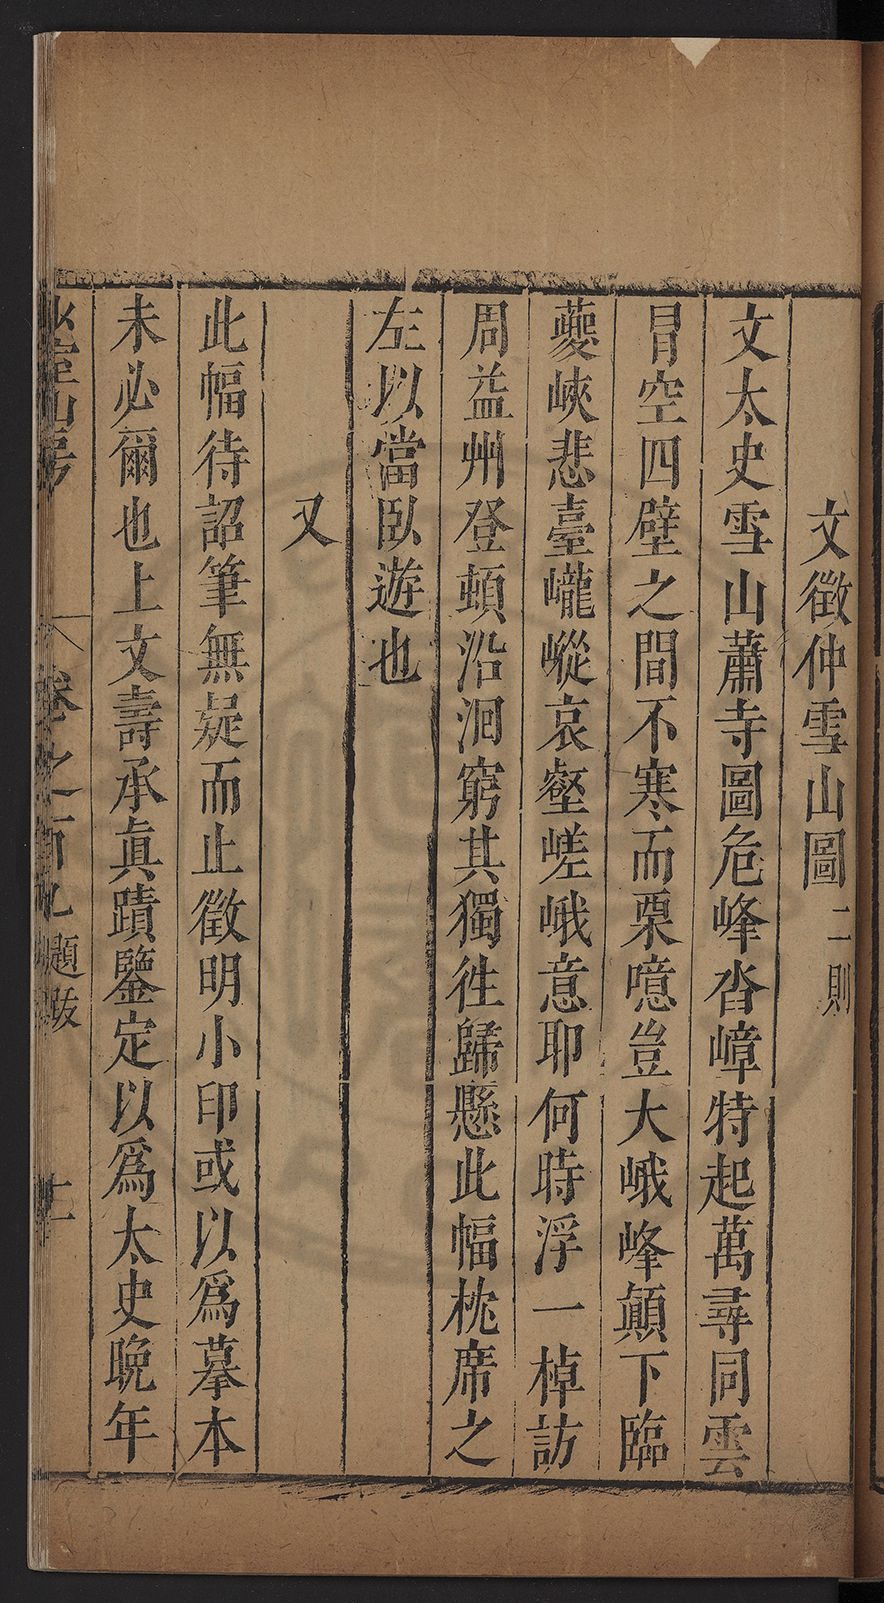 文徵仲雪山圖 二則
文太史雪山蕭寺圖危峰沓嶂特起萬尋同雲
冒空四壁之間不寒而栗噫豈大峨峰顛下臨
夔峽悲臺巄嵷哀壑嵯峨意耶何時浮一棹訪
周益州登頓沿洄窮其獨徃歸懸此幅枕席之
左以當臥遊也
又
此幅待詔筆無疑而止徵明小印或以爲摹本
未必爾也上文壽承眞蹟鑒定以爲太史晚年
山房 卷之 題跋